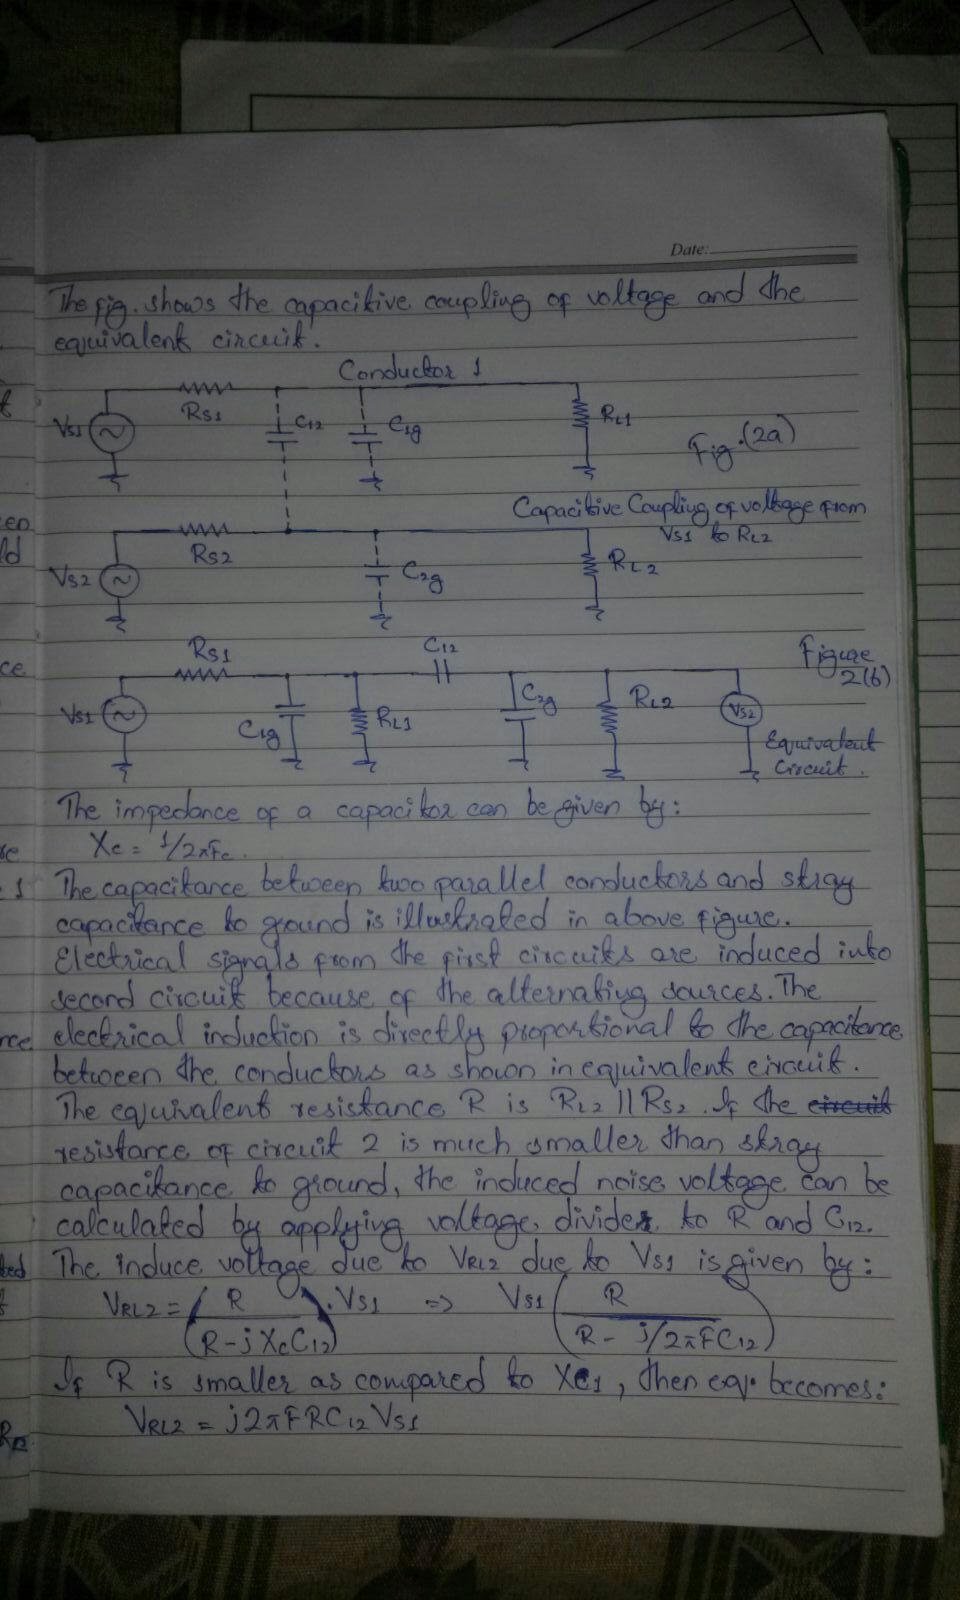 Date:
The fig. shows the capacitive coupling of voltage and the
equivalent circuit.
Conductor 1
RS1
C12
C1g
RL1
VS1
Fig.(2a)
Capacitive Coupling of voltage from
VS1 to RL2
RS2
VS2
C2g
RL2
RS1
C12
Figure
2(b)
VS1
C1g
RL1
C2g
RL2
VS2
Equivalent
Circuit.
The impedance of a capacitor can be given by:
Xc = 1/2πFc.
The capacitance between two parallel conductors and stray
capacitance to ground is illustrated in above figure.
Electrical signals from the first circuits are induced into
second circuit because of the alternating sources. The
electrical induction is directly proportional to the capacitance
between the conductors as shown in equivalent circuit.
The equivalent resistance R is RL2 || RS2. If the circuit
resistance of circuit 2 is much smaller than stray
capacitance to ground, the induced noise voltage can be
calculated by applying voltage divider to R and C12.
The induce voltage due to VRL2 due to VS1 is given by:
VRL2 = (R / R - j XcC12) . VS1 => VS1 (R / R - j/2πFC12)
If R is smaller as compared to Xc1, then eq. becomes:
VRL2 = j2πFRC12 VS1